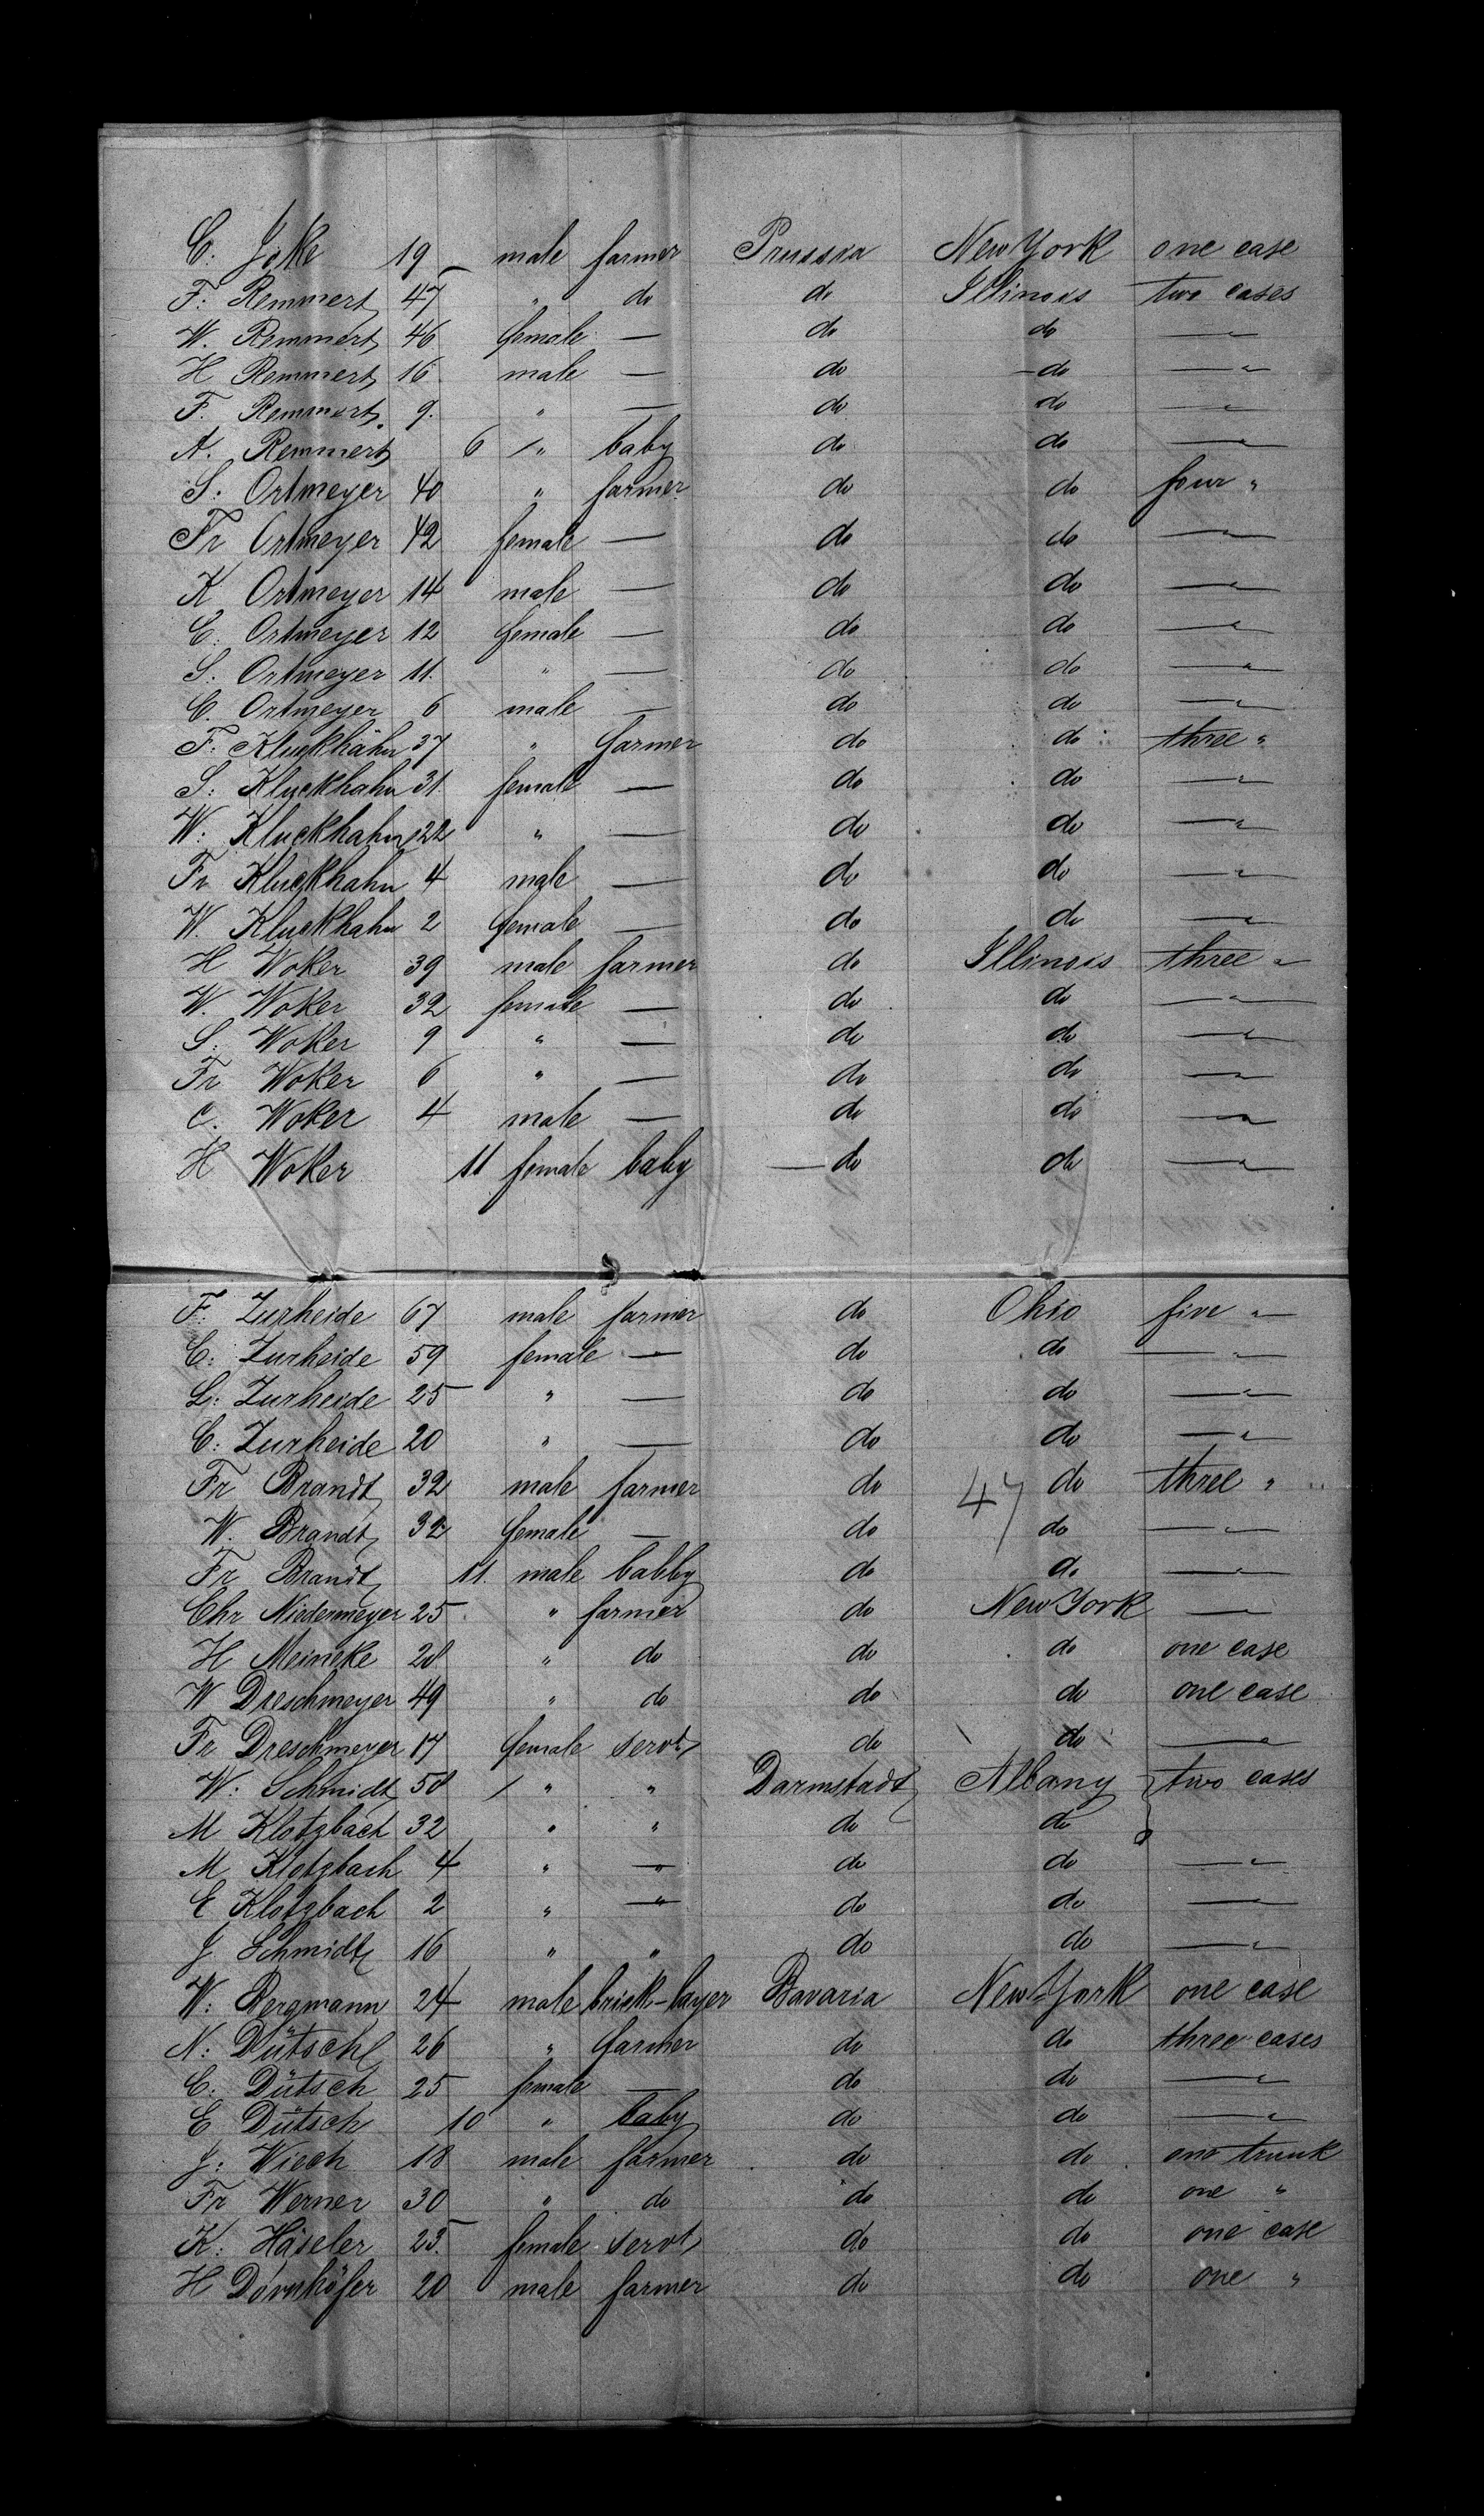 C. Joke 19 male farmer Prussia New York one case
F. Remmert 47 " do do Illinois two cases
W. Remmert 46 female — do do — " —
H Remmert 16 male — do do — " —
F. Remmert 9. " — do do — " —
A. Remmert 6 " baby do do — " —
S. Ortmeyer 40 " farmer do do four "
Fr Ortmeyer 42 female — do do — " —
K Ortmeyer 14 male — do do — " —
C. Ortmeyer 12 female — do do — " —
S. Ortmeyer 11. " — do do — " —
C. Ortmeyer 6 male — do do — " —
F. Kluckhahn 37 " farmer do do three "
S. Kluckhahn 31. female — do do — " —
W. Kluckhahn 22 " — do do — " —
Fr Kluckhahn 4 male — do do — " —
W. Kluckhahn 2 female — do do — " —
H Woker 39 male farmer do Illinois three "
W. Woker 32 female — do do — " —
S. Woker 9 " — do do — " —
Fr Woker 6 " — do do — " —
C. Woker 4 male — do do — " —
H Woker 11 female baby — do do — " —
F. Zurheide 67 male farmer do Ohio five "
C. Zurheide 59 female — do do — " —
L. Zurheide 25 " — do do — " —
C. Zurheide 20 " — do do — " —
Fr Brandt 32 male farmer do 47 do three "
W. Brandt 32 female — do do — " —
Fr Brandt 11. male babby do do — " —
Chr Niedermeyer 25 " farmer do New York — " —
H Meineke 28 " do do do one case
W Dreschmeyer 49 " do do do one case
Fr Dreschmeyer 17 female servt do do — " —
W. Schmidt 58 " " Darmstadt Albany two cases
M Klotzbach 32 " " do do
M Klotzbach 4 " — do do — " —
E Klotzbach 2 " — do do — " —
J Schmidt 16 " " do do — " —
W. Bergmann 24 male brick-layer Bavaria New York one case
N. Dütsch 26 " farmer do do three cases
C. Dütsch 25 female — do do — " —
E Dütsch 10 " baby do do — " —
J. Wiech 18 male farmer do do one trunk
Fr Werner 30 " do do do one "
K. Häseler 23. female servt do do one case
H Dörnhöfer 20 male farmer do do one "